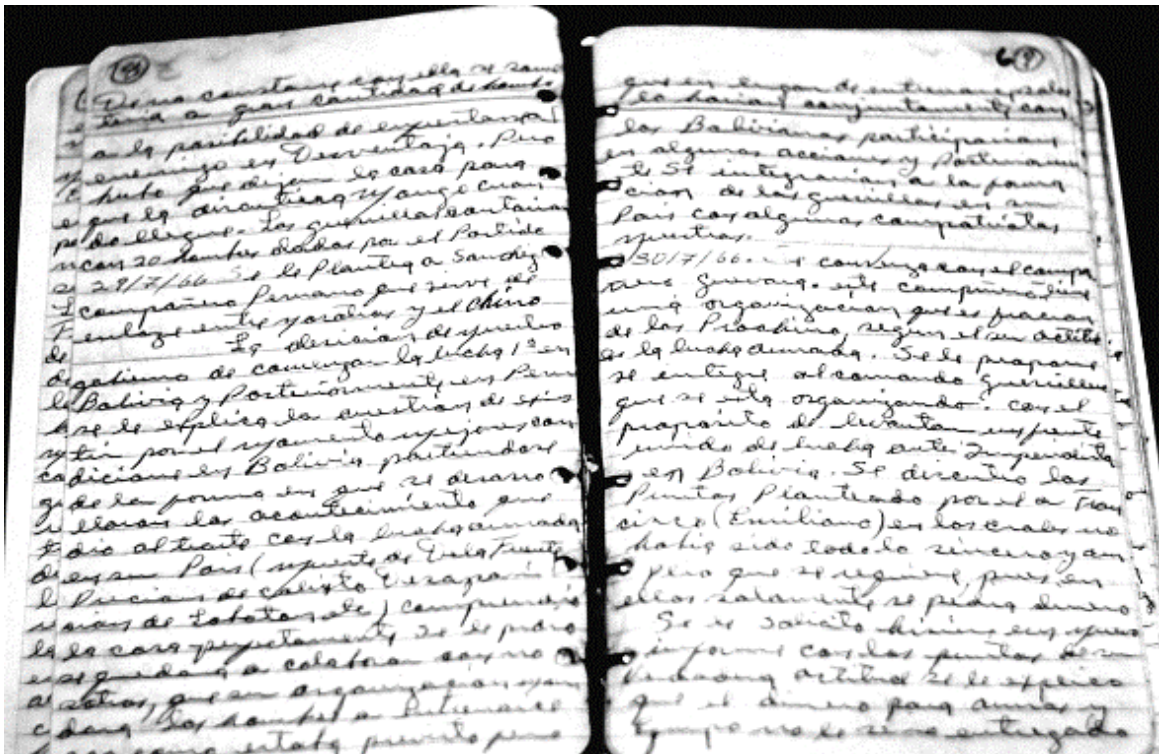 De no constans con ella se some
teria a gran cantidad de hombr
a la posibilidad de enfrentarse al
enemigo en Desventaja. Pero
hubo que dejar la cosa para
que la discutiera mongo cuan
do llegue. Las guerrillas contarian
con 20 hombres dados por el Partido
29/7/66 Se le Plantea a Sanchez
compañero Peruano que sirve de
enlace entre nosotros y el chino
La decision de nuestro
de comenzar la lucha 1º en
Bolivia y Posteriormente en Peru
se le explica la cuestion de exis
tir por el momento mejores con
diciones en Bolivia partiendose
de la forma en que se desarro
llaron los acontecimiento que
dio al traste con la lucha armada
en su Pais (muerte de De la Puente
Precion de calisto Desapari
cion de Lobaton etc) comprendio
la cosa perfectamente Se le pidio
se quedara a colaborar con no
sotros, que su organizacion man
dara los hombres a Entrenarse
como estaba previsto pero
6 (9)
que en lugar de entrenarse solos
lo harian conjuntamente con
los Bolivianos participarian
en algunas acciones y Posteriormen
te Se integrarian a la forma
cion de las guerrillas en su
Pais con algunos compatriotas
nuestros.
30/7/66. converso con el compa
ñero Guevara. este compañero tiene
una organizacion que es fraccion
de los Prochino, segun el su actitu
es la lucha armada. Se le propone
se integre al comando Guerrillero
que se esta organizando. con el
proposito de levantar un frente
unido de lucha ante Imperialista
en Bolivia. Se discutio los
Puntos Planteado por el a Fran
cisco (Emiliano) en los cuales no
habia sido todo lo sincero y am
plio que se requiere, pues en
ellos solamente se pedia dinero
Se le Solicito hiciera un nuevo
informe con los puntos de su
verdadera actitud se le explico
que el dinero para armas y
no le seria entregado